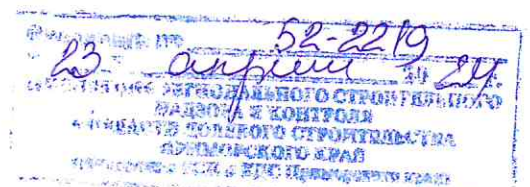 52-2219
23 апреля 2024
РЕГИОНАЛЬНОГО СТРОИТЕЛЬНОГО
НАДЗОРА И КОНТРОЛЯ
В ОБЛАСТИ ДОЛЕВОГО СТРОИТЕЛЬСТВА
ПРИМОРСКОГО КРАЯ
Приморского края